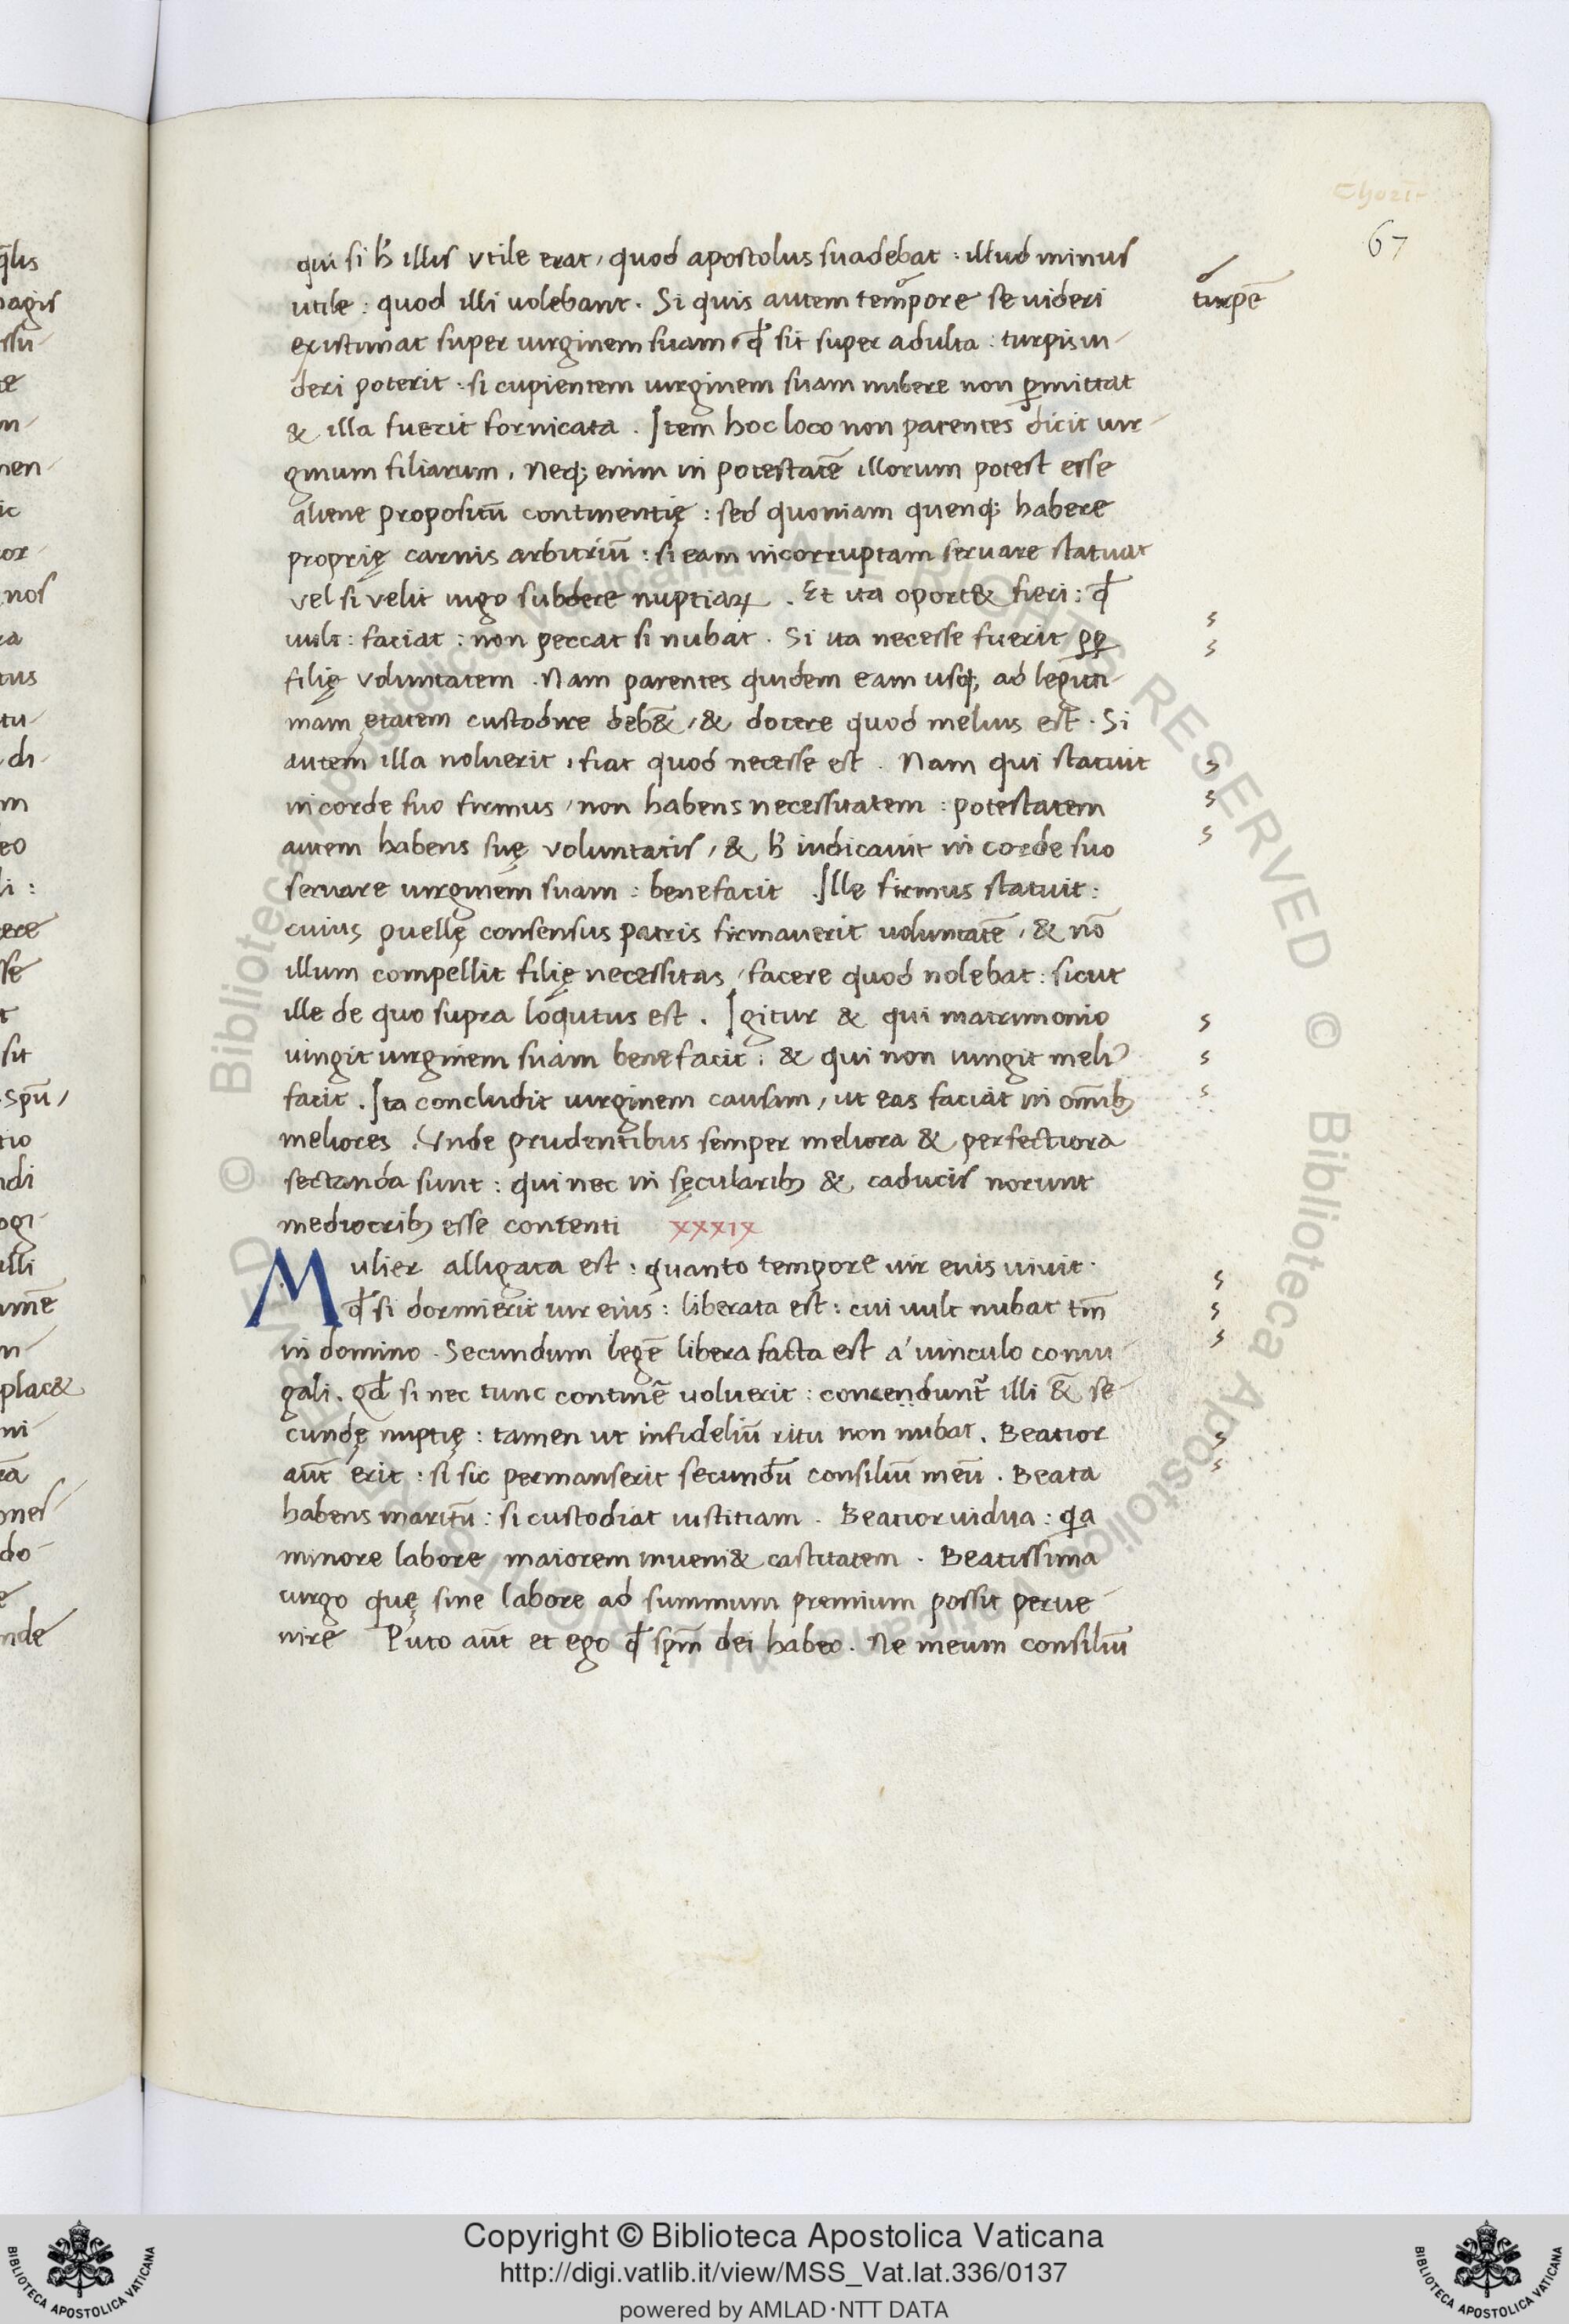 Chori-
67
qui si h' illis vtile erat, quod apostolus suadebat : illud minus
utile : quod illi uolebant. Si quis autem tempore se uideri
turpē
existimat super uirginem suam, qđ sit super adulta : turpis ui-
deri poterit : si cupientem uirginem suam nubere non ꝑmittat
& illa fuerit fornicata. Item hoc loco non parentes dicit uir-
ginum filiarum. Neq; enim in potestatē illorum potest esse
aliene propositū continentię : sed quoniam quenq; habere
proprię carnis arbitriū : si eam incorruptam seruare statuat
vel si velit iugo subdere nuptiaꝝ. Et ita oport& fieri : qđ
uult : faciat : non peccat si nubat. Si ita necesse fuerit ꝓꝑ
filię voluntatem. Nam parentes quidem eam usq; ad legiti-
mam ętatem custodire deb&̄, & docere quod melius est. Si
autem illa noluerit, fiat quod necesse est. Nam qui statuit
in corde suo firmus, non habens necessitatem : potestatem
autem habens suę voluntatis, & h' iudicauit in corde suo
seruare uirginem suam : benefacit. Ille firmus statuit :
cuius puellę consensus patris firmauerit voluntatē, & nō
illum compellit filię necessitas, facere quod nolebat : sicut
ille de quo supra loqutus est. Igitur & qui matrimonio
iungit uirginem suam bene facit : & qui non iungit meliꝰ
facit. Ita concludit uirginem causam, ut eas faciat in om̄ib;
meliores. Unde prudentibus semper meliora & perfectiora
sectanda sunt : qui nec in sęcularib; & caducis norunt
mediocrib; esse contenti xxxix
Mulier alligata est : quanto tempore uir euis uiuit.
qđ si dormierit uir eius : liberata est : cui uult nubat tm̄
in domino. Secundum legē libera facta est a' uinculo coniu
gali. Qđ si nec tunc continē uoluerit : concendunt̄ illi &̄ se-
cundę nuptię : tamen ut infideliū ritu non nubat. Beatior
aūt erit : si sic permanserit secundū consiliū meū. Beata
habens maritū : si custodiat iustitiam. Beatior uidua : qa
minore labore maiorem inueni& castitatem. Beatissima
uirgo quę sine labore ad summum premium possit perue-
nire Puto aūt et ego qđ sp̄m dei habeo. Ne meum consiliū
Copyright © Biblioteca Apostolica Vaticana
http://digi.vatlib.it/view/MSS_Vat.lat.336/0137
powered by AMLAD·NTT DATA